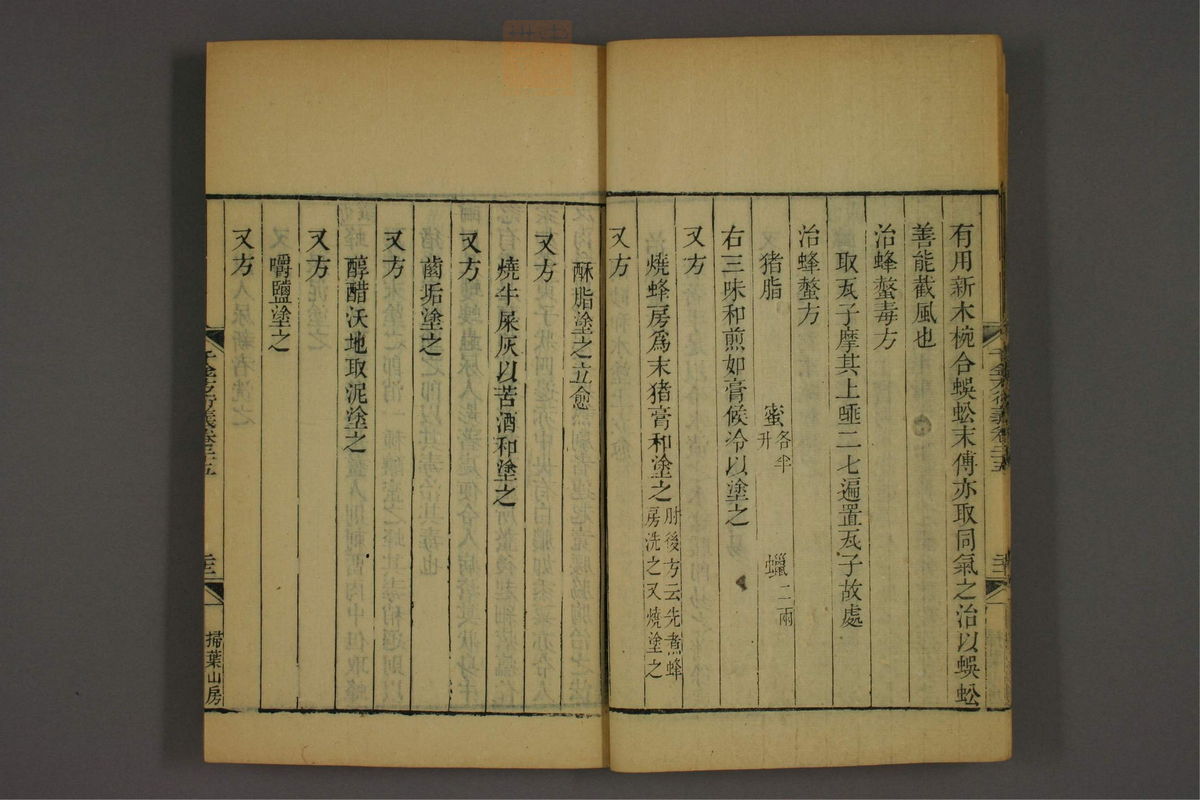 有用新木椀合蜈蚣末傅亦取同氣之治以蜈蚣
善能截風也
治蜂螫毒方
取瓦子摩其上唾二七遍置瓦子故處
治蜂螫方
猪脂 蜜各半升 蠟二兩
右三味和煎如膏候冷以塗之
又方
燒蜂房爲末猪膏和塗之肘後方云先煮蜂房洗之又燒塗之
又方
酥脂塗之立愈
又方
燒牛屎灰以苦酒和塗之
又方
齒垢塗之
又方
醇醋沃地取泥塗之
又方
嚼鹽塗之
又方
千金方衍義卷二十五
掃葉山房